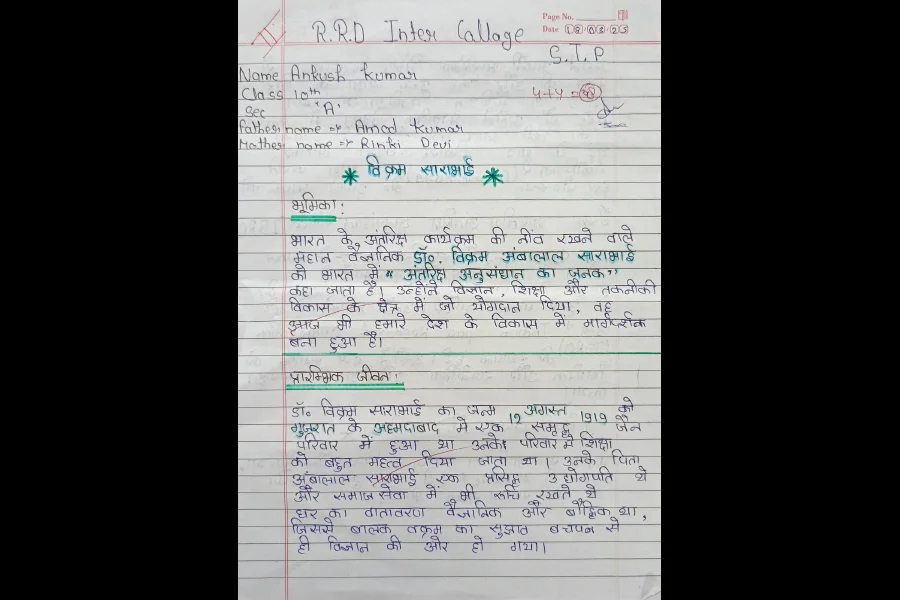 R.R.D Inter Callage
Page No.
Date 12 08 25
S.T.P
Name Ankush Kumar
Class 10th
Sec 'A'
4+4 =
Father name => Amod Kumar
Mather name => Rinki Devi
विक्रम साराभाई
भूमिका:
भारत के अंतरिक्ष कार्यक्रम की नींव रखने वाले
महान वैज्ञानिक डॉ॰ विक्रम अंबालाल साराभाई
को भारत में " अंतरिक्ष अनुसंधान का जनक"
कहा जाता है। उन्होंने विज्ञान, शिक्षा और तकनीकी
विकास के क्षेत्र में जो योगदान दिया, वह
आज भी हमारे देश के विकास में मार्गदर्शक
बना हुआ है।
प्रारम्भिक जीवन:
डॉ॰ विक्रम साराभाई का जन्म 12 अगस्त 1919 को
गुजरात के अहमदाबाद में एक समृद्ध जैन
परिवार में हुआ था उनके परिवार में शिक्षा
को बहुत महत्व दिया जाता था। उनके पिता
अंबालाल साराभाई एक प्रसिद्ध उद्योगपति थे
और समाज सेवा में भी रूचि रखते थे
घर का वातावरण वैज्ञानिक और बौद्धिक था,
जिससे बालक वक्रम का सुझात बचपन से
ही विज्ञान की ओर हो गया।